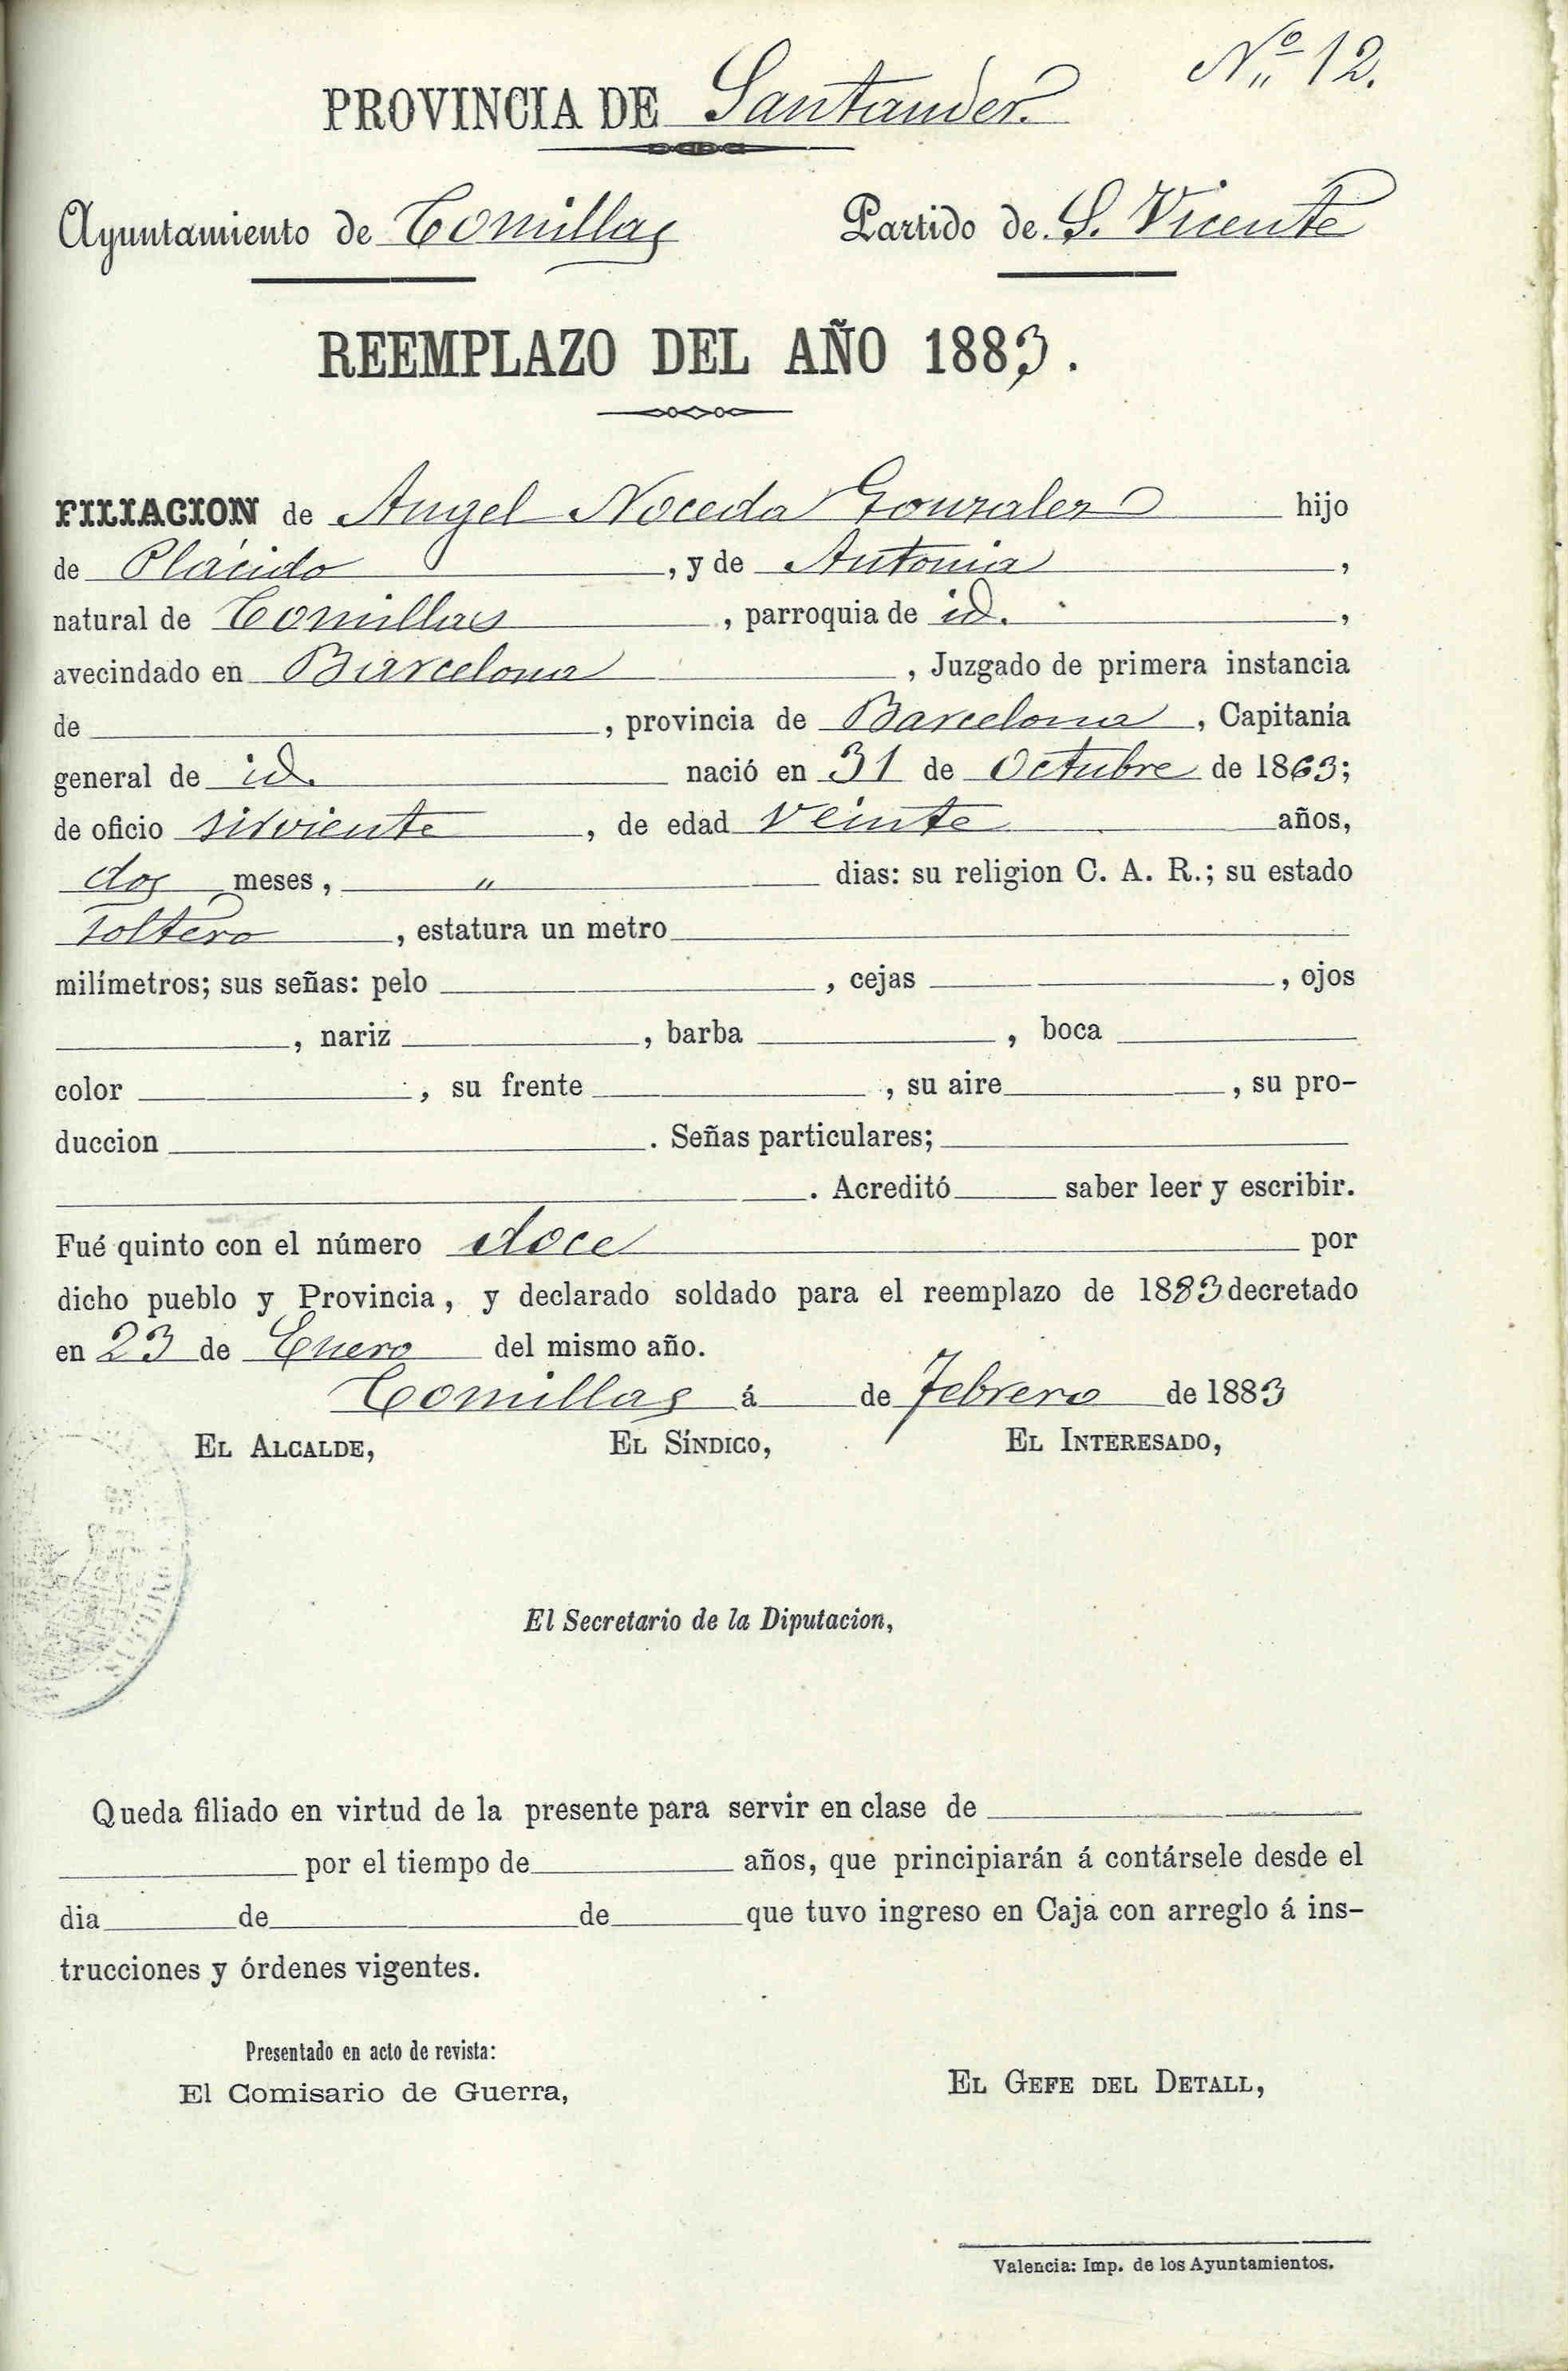 Nº 12.
PROVINCIA DE Santander.
Ayuntamiento de Comillas Partido de S. Vicente
REEMPLAZO DEL AÑO 1883.
FILIACION de Angel Noceda Gonzalez hijo
de Plácido, y de Antonia,
natural de Comillas, parroquia de id.,
avecindado en Barcelona, Juzgado de primera instancia
de , provincia de Barcelona, Capitanía
general de id. nació en 31 de Octubre de 1863;
de oficio sirviente, de edad Veinte años,
dos meses, " dias: su religion C. A. R.; su estado
soltero, estatura un metro
milímetros; sus señas: pelo , cejas , ojos
, nariz , barba , boca
color , su frente , su aire , su pro-
duccion . Señas particulares;
. Acreditó saber leer y escribir.
Fué quinto con el número doce por
dicho pueblo y Provincia, y declarado soldado para el reemplazo de 1883 decretado
en 23 de Enero del mismo año.
Comillas á de Febrero de 1883
EL ALCALDE, EL SÍNDICO, EL INTERESADO,
El Secretario de la Diputacion,
Queda filiado en virtud de la presente para servir en clase de
por el tiempo de años, que principiarán á contársele desde el
dia de de que tuvo ingreso en Caja con arreglo á ins-
trucciones y órdenes vigentes.
Presentado en acto de revista:
El Comisario de Guerra, EL GEFE DEL DETALL,
Valencia: Imp. de los Ayuntamientos.